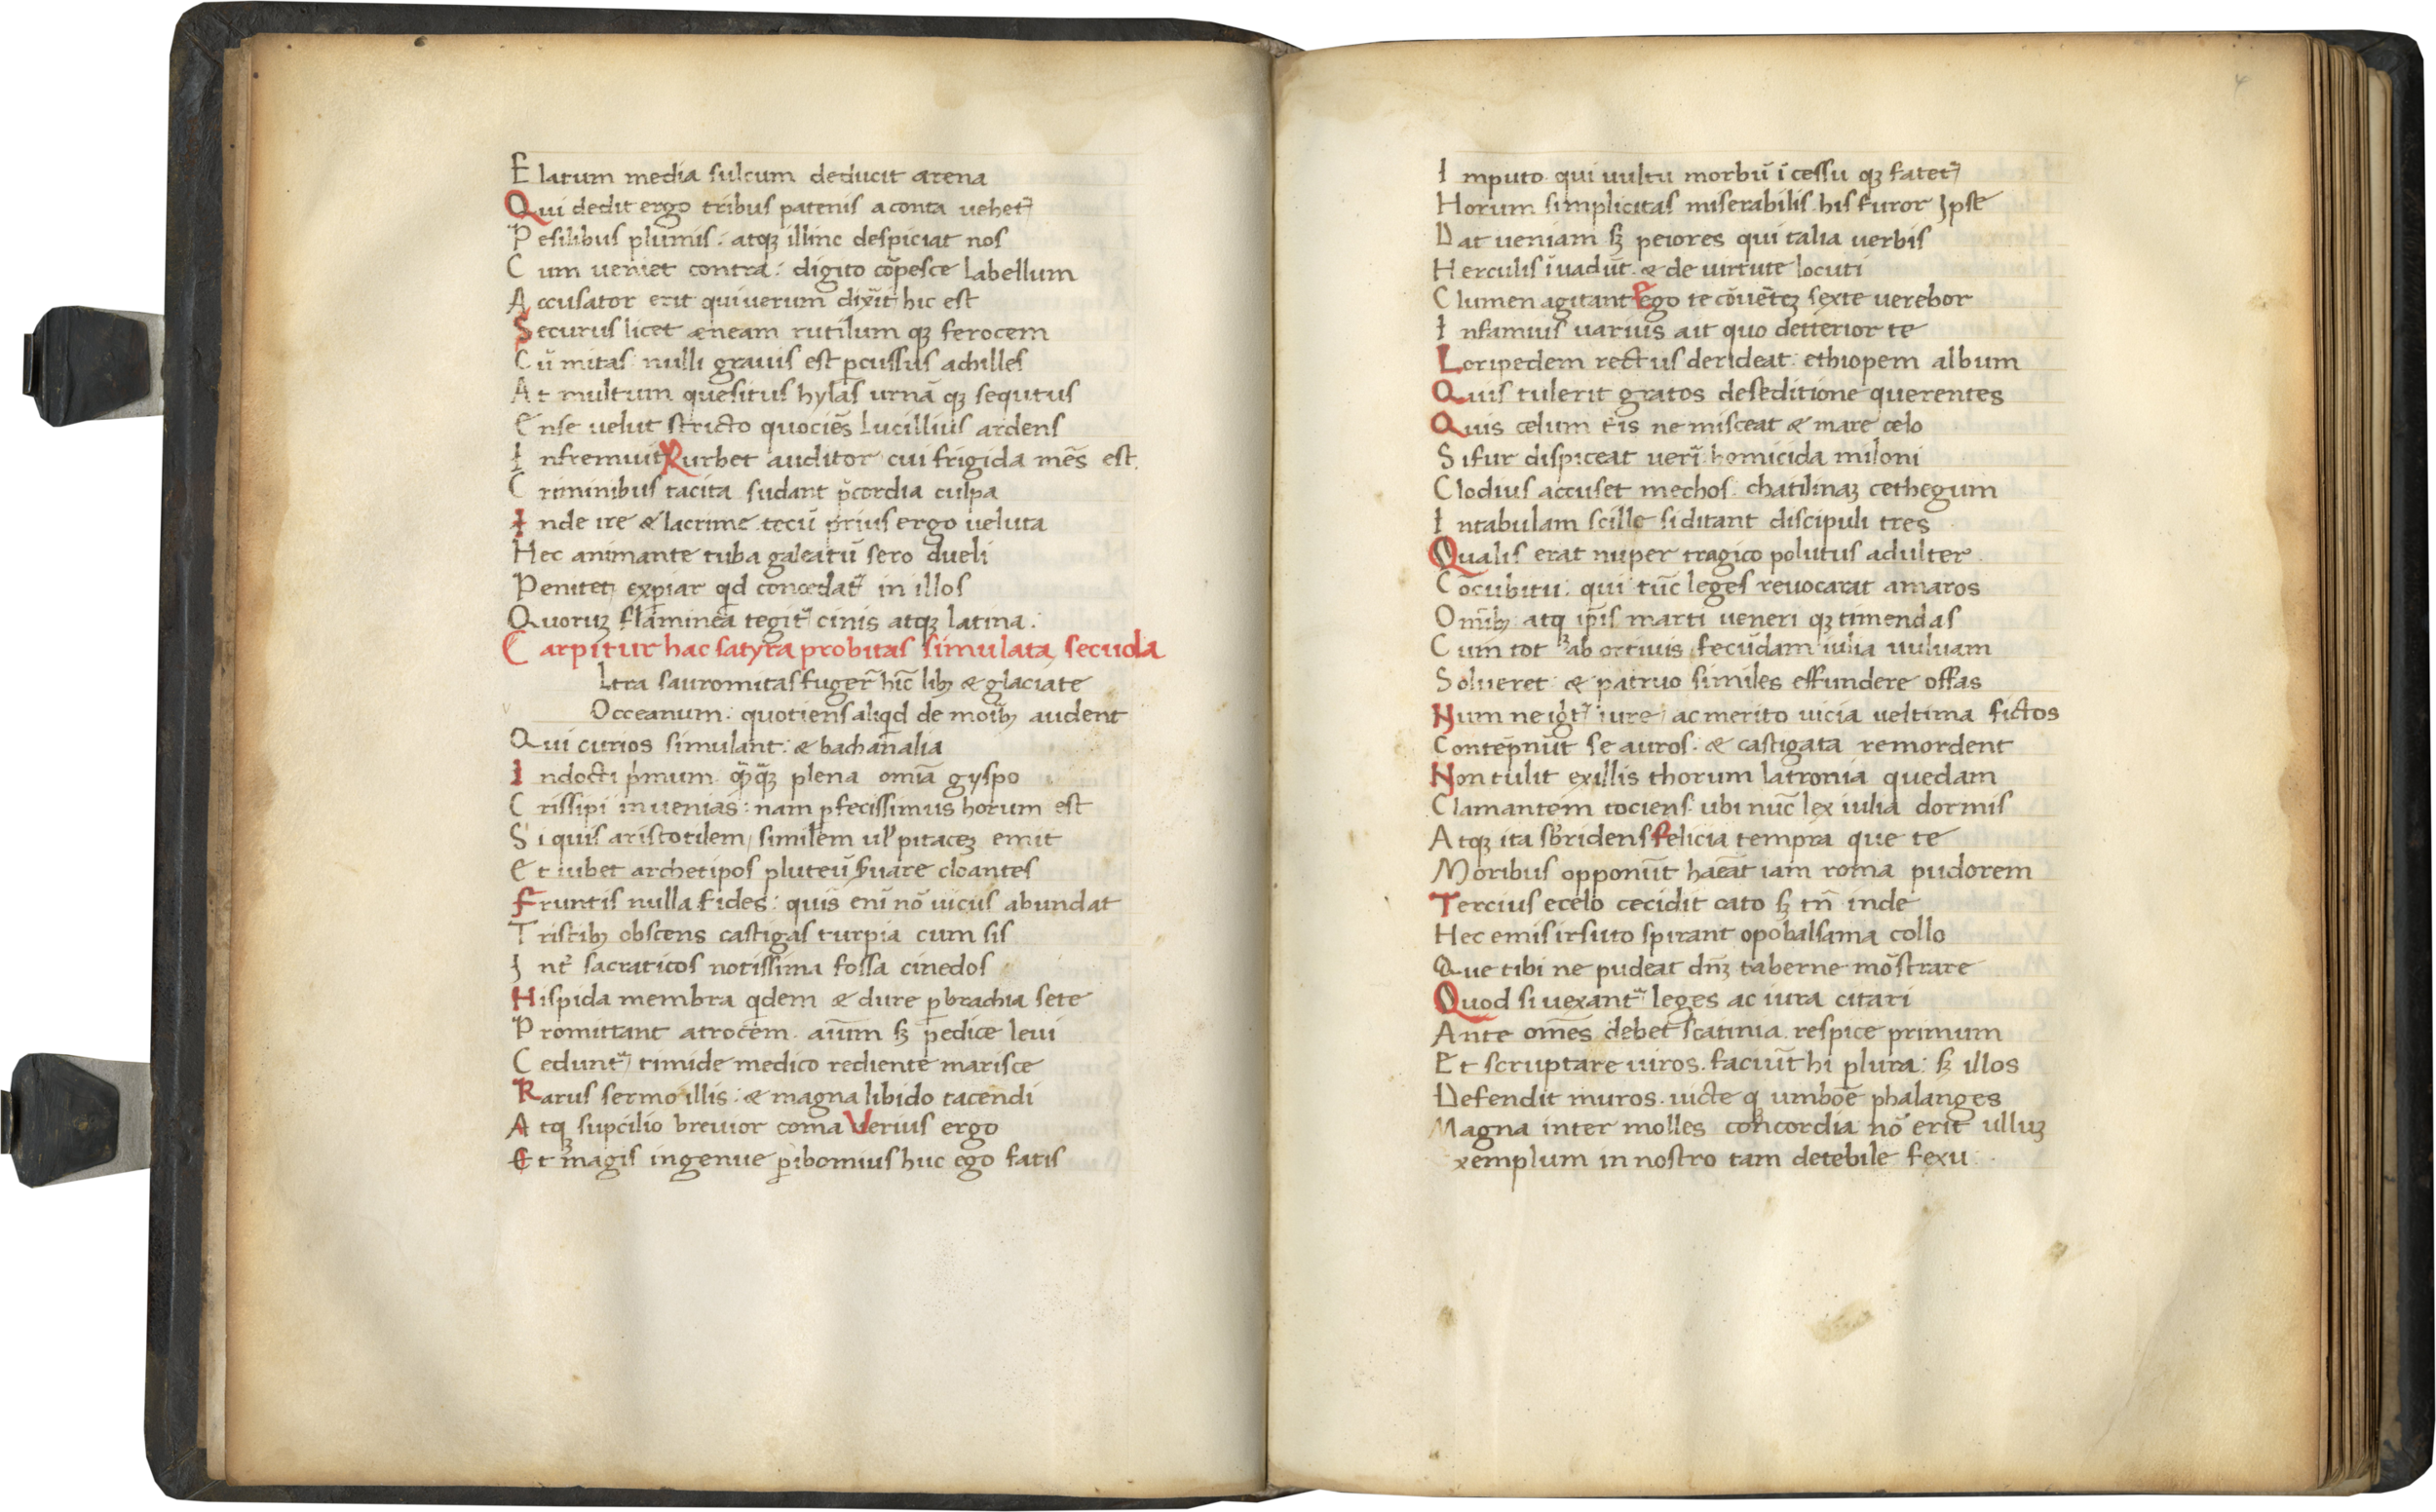 E latum media sulcum deducit arena
Qui dedit ergo tribus patenis aconta uehet᷑
P esilibus plumis: atqꝫ illinc despiciat nos
C um ueniet contra: digito cōpesce labellum
A ccusator erit qui uerum dixit hic est
Securus licet æneam rutilum qꝫ ferocem
C ū mitas nulli grauis est ꝑcussus achilles
A t multum quesitus hylas urnā qꝫ sequtus
E nse uelut stricto quociēs lucillius ardens
I nfremuit Rurbet auditor cui frigida mēs est
C riminibus tacita sudant p̄cordia culpa
I nde ire & lacrime tecū prius ergo ueluta
Hec animante tuba galeatū sero dueli
Penitet expiar qd concedat᷑ in illos
Quoruꝫ flaminea tegit᷑ cinis atqꝫ latina.
C arpitur hac satyra probitas simulata, secūda
ltra sauromitas fuger̄ hīc libꝫ & glaciate
Occeanum: quotiens aliqd de moribꝫ audent
Qui curios simulant: & bachanalia
I ndocti pimum qꝫqꝫ plena omīa gyspo
C rissipi inuenias: nam ꝑfecissimus horum est
S i quis aristotilem, similem ul pitaceꝫ emit
E t iubet archetipos pluteū ẜuare cloantes
Fruntis nulla fides: quis enī nō uicus abundat
T ristibꝫ obscens castigas turpia cum sis
I nt᷑ sacraticos notissima fossa cinedos
Hispida membra qdem & dure ꝑ brachia sete
P romittant atrocem aīum sꝫ pedice leui
C edunt᷑, timide medico rediente marisce
Rarus sermo illis: & magna libido tacendi
A tqꝫ suꝑcilio breuior coma Verius ergo
Et magis ingenue ꝑibomius huc ego fatis
4
I mputo qui uultu morbū īcessu qꝫ fatet᷑
Horum simplicitas miserabilis his furor Ipse
Dat ueniam sꝫ peiores qui talia uerbis
Herculis īuadūt & de uirtute locuti
Clumen agitant Ego te cōuēteꝫ sexte uerebor
I nfamius uarius ait quo detterior te
Loripedem rectus derideat: ethiopem album
Quis tulerit gratos de seditione querentes
Quis celum t̄is ne misceat & mare celo
Si fur dispiceat ueri homicida miloni
Clodius accuset mechos: chatilinaꝫ cethegum
I ntabulam scille si ditant discipuli tres
Qualis erat nuper tragico polutus adulter
Cōcubitu: qui tūc leges reuocarat amaros
Omībꝫ atqꝫ ip̄is marti ueneri qꝫ timendas
C um tot ab ortiuis fecūdam iulia uuluam
Solueret: & patruo similes effundere offas
Num ne igit᷑ iure, ac merito uicia ueltima fictos
Contēpnūt se auros: & castigata remordent
Non tulit exillis thorum latronia quedam
Clamantem tociens ubi nūc lex iulia dormis
Atqꝫ ita sbridens felicia tempra que te
Moribus opponūt haēat iam roma pudorem
Tercius ecelo cecidit cato sꝫ tn̄ inde
Hec emis irsuto spirant opobalsama collo
Que tibi ne pudeat dn̄ꝫ taberne mōstrare
Quod si uexant᷑ leges ac iura citari
Ante omēs debet scatinia respice primum
Et scruptare uiros. faciūt hi plura: sꝫ illos
Defendit muros. uicte qꝫ umboē phalanges
Magna inter molles concordia nō erit ulluꝫ
xemplum in nostro tam detebile sexu